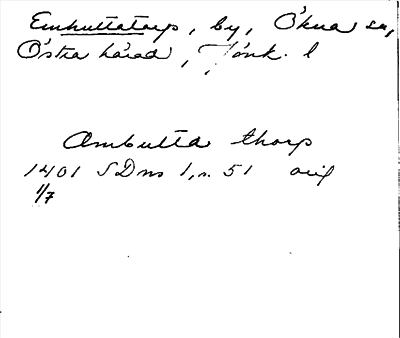 Emhultatorp, by, Ökna sn,
Östra härad, Jönk. l
Ambulta thorp
1401 SDns 1, n. 51 orig
1/7